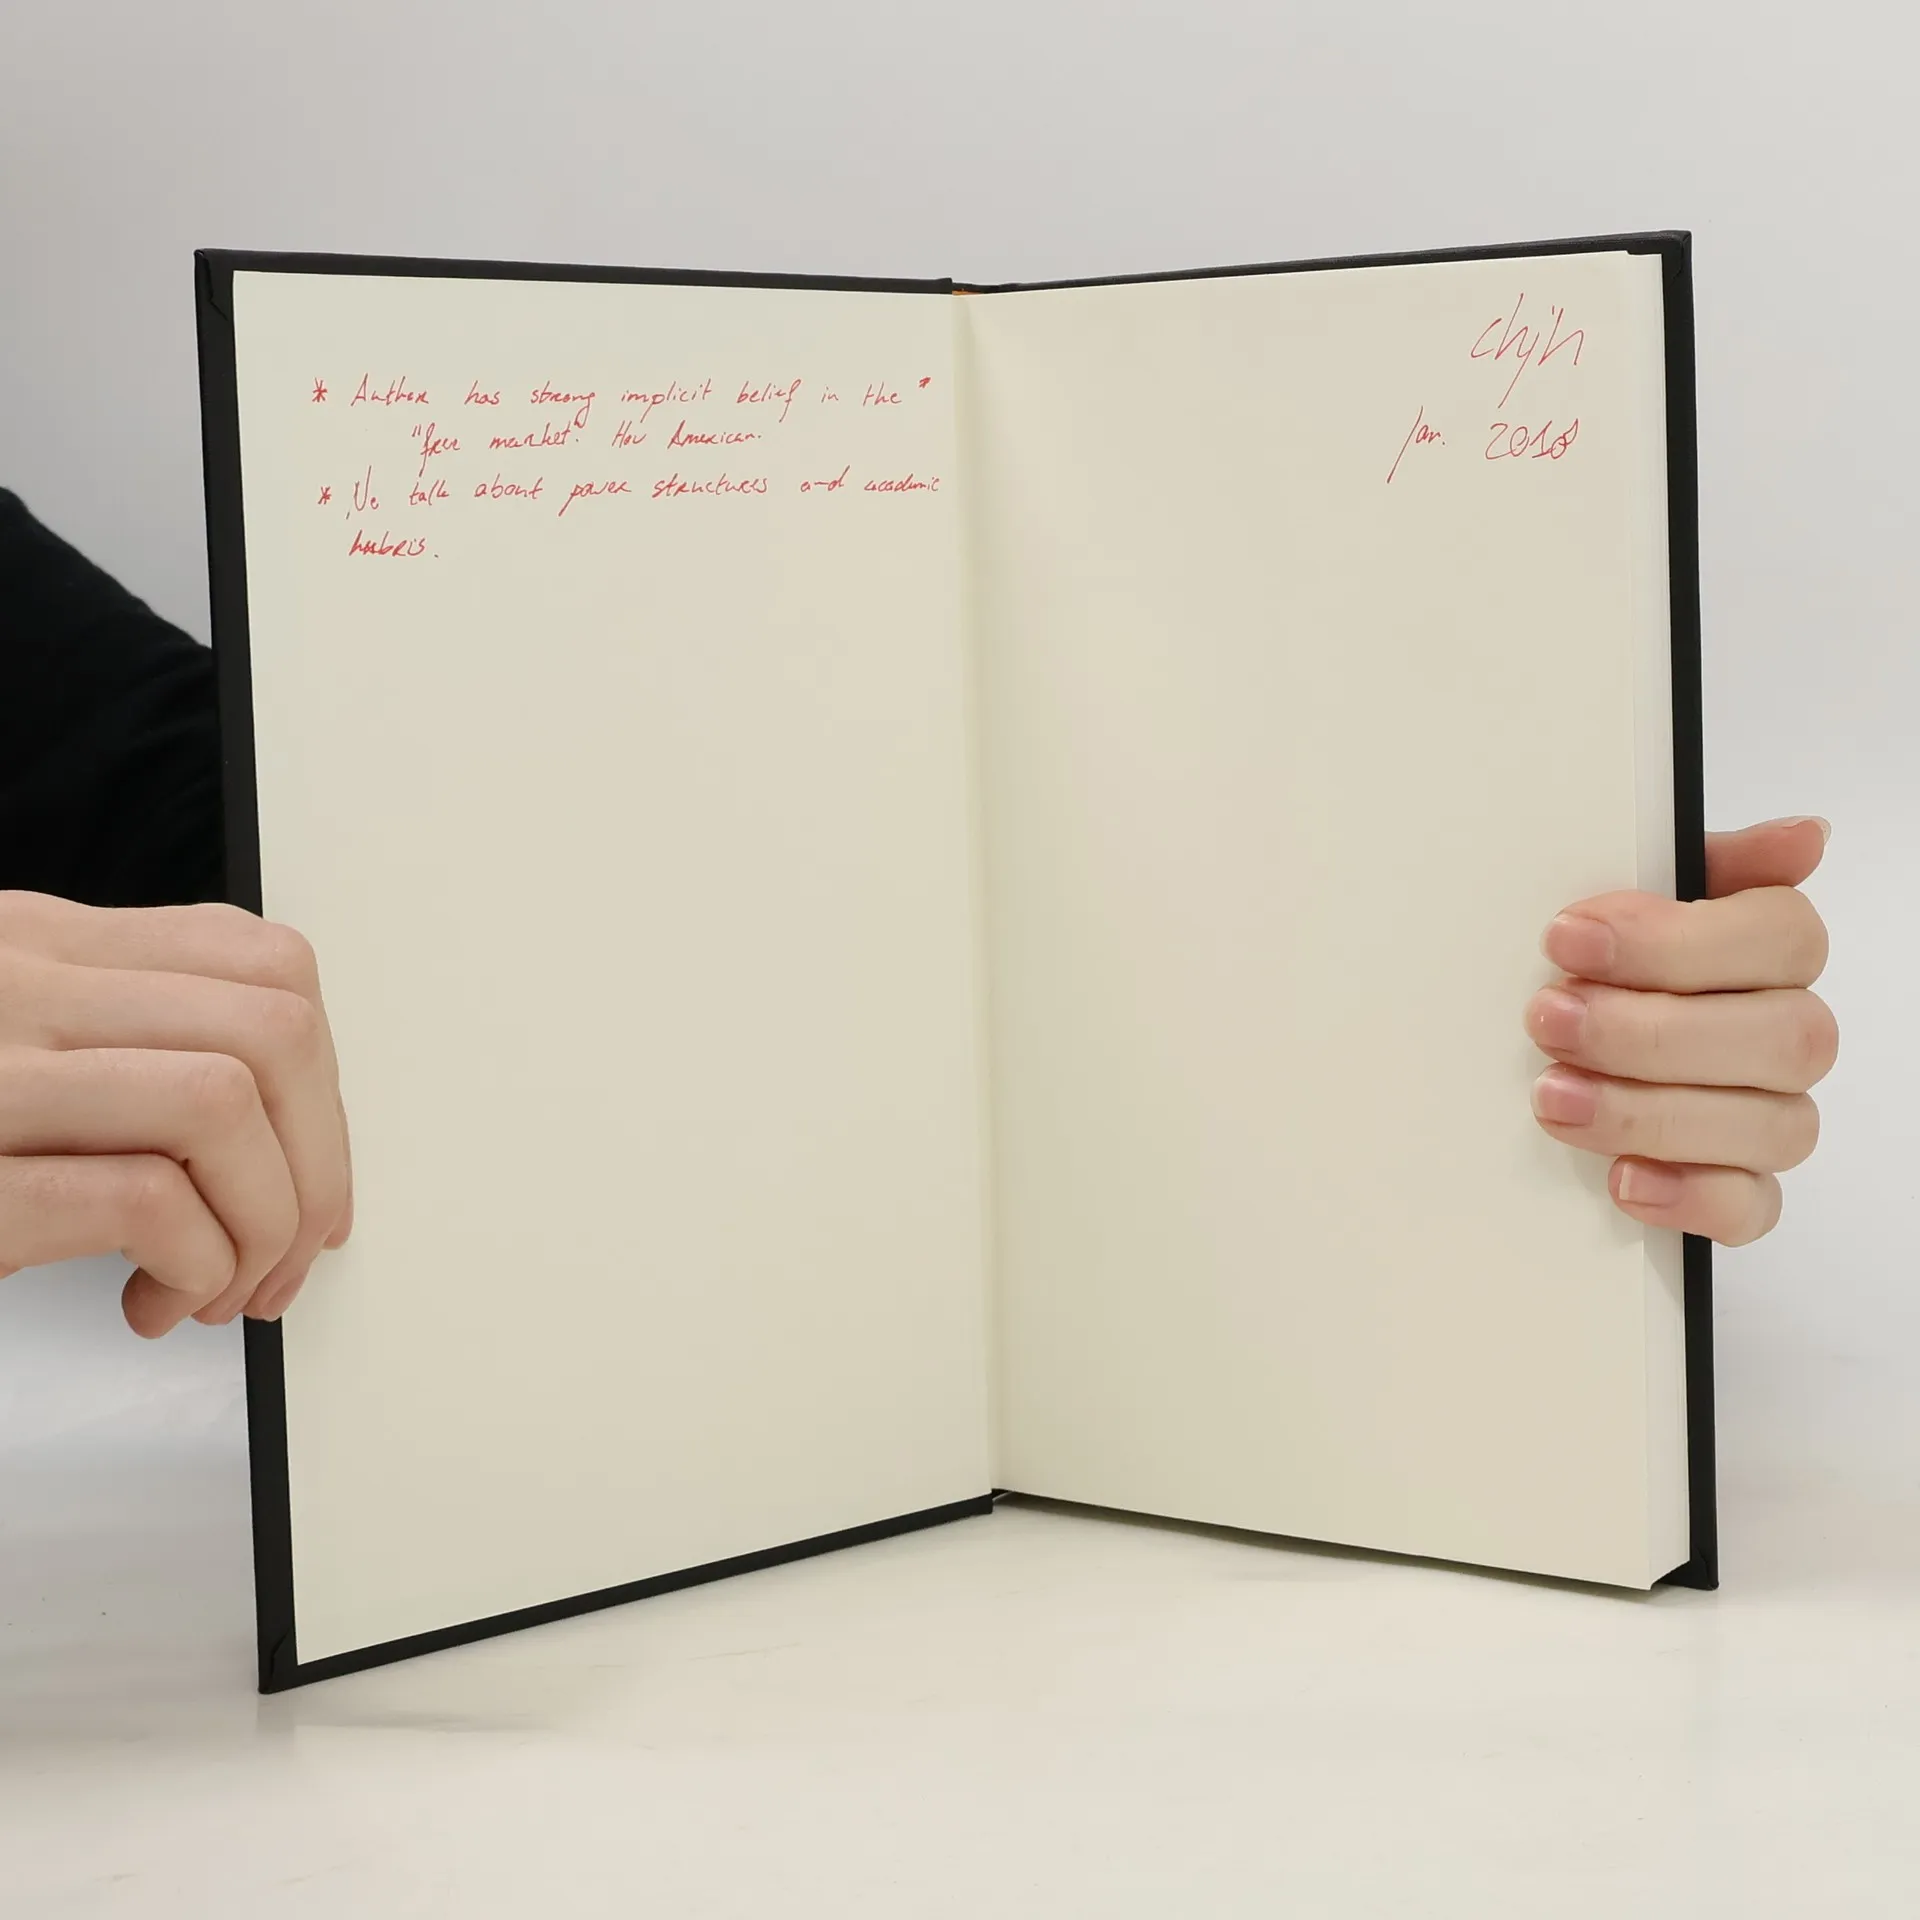 * Author has strong implicit belief in the "
"free market". How American.
* We talk about power structures and academic
hubris.
Jan. 2018